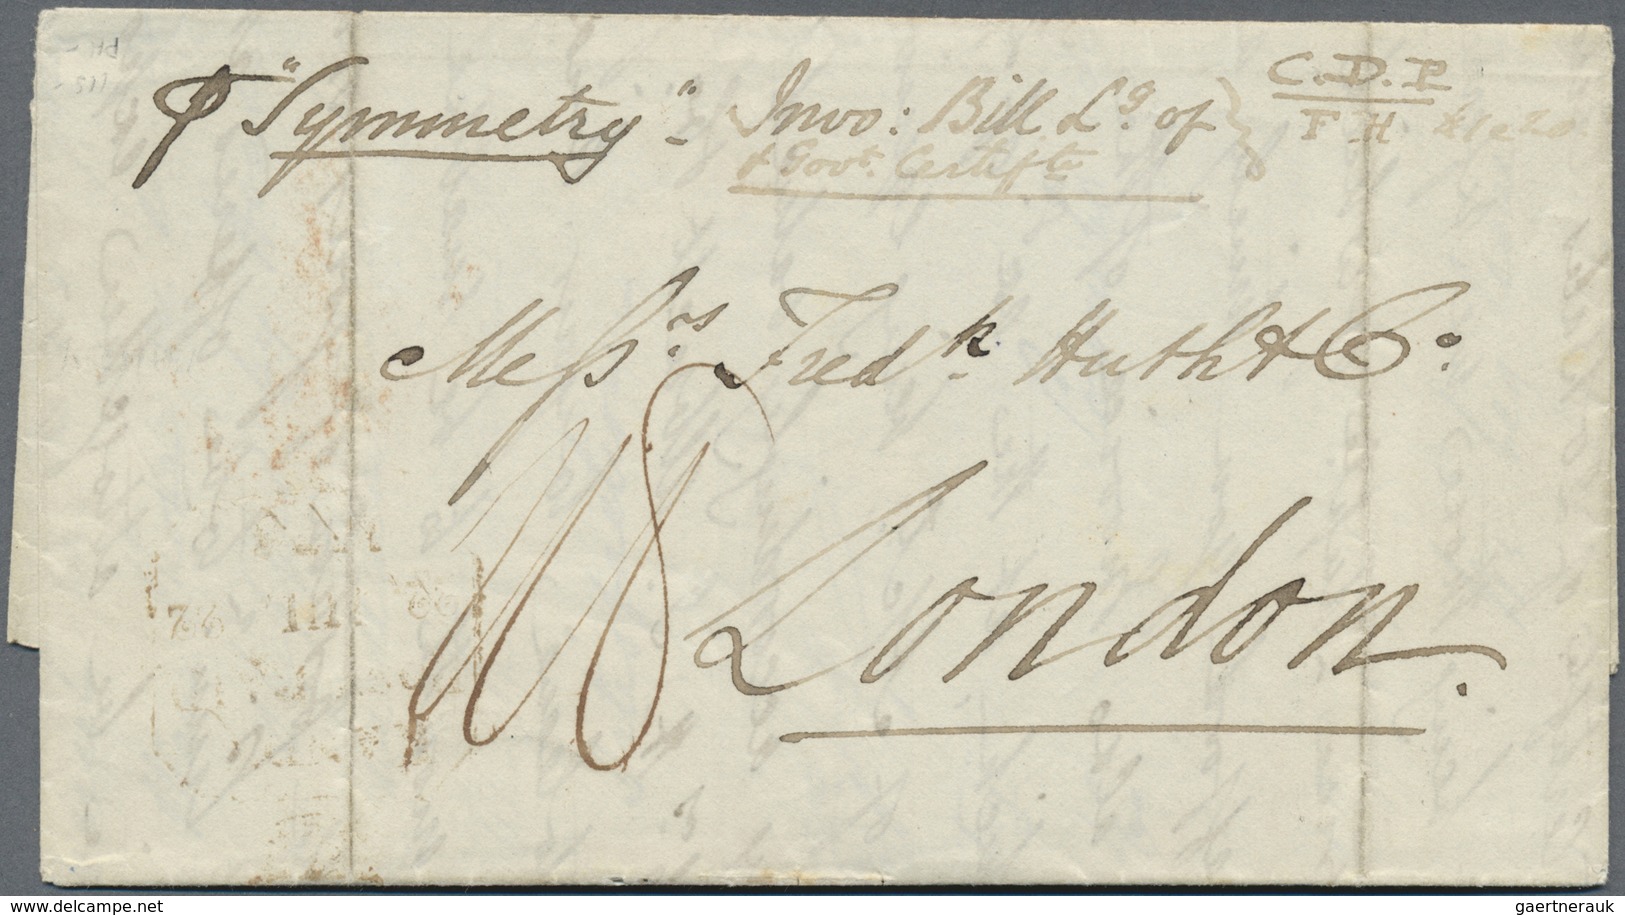 ℘ "Symmetry" Invo: Bill Lg. of } C.D.P
& Govt. Certifte
F H
Messrs. Fredk. Huth & Co.
W8
London.
delcampe.net
gaertnerauk